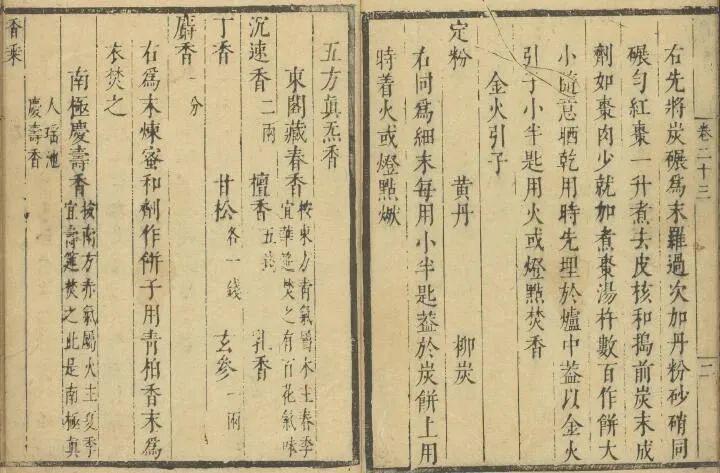 卷二十三
二
右先將炭碾爲末羅過次加丹粉砂硝同
碾勻紅棗一升煮去皮核和搗前炭末成
劑如棗肉少就加煮棗湯杵數百作餅大
小隨意晒乾用時先埋於爐中葢以金火
引子小半匙用火或燈點焚香
金火引子
定粉 黃丹 柳炭
右同爲細末每用小半匙葢於炭餅上用
時着火或燈點燃
五方真炁香
東閣藏春香 按東方青氣屬木主春季宜華筵焚之有百花氣味
沉速香二兩 檀香五錢 乳香
丁香 甘松各一錢 玄參一兩
麝香一分
右爲末煉蜜和劑作餅子用青柏香末爲
衣焚之
南極慶壽香 按南方赤氣屬火主夏季宜壽筵焚之此是南極真
人瑤池慶壽香
香乘